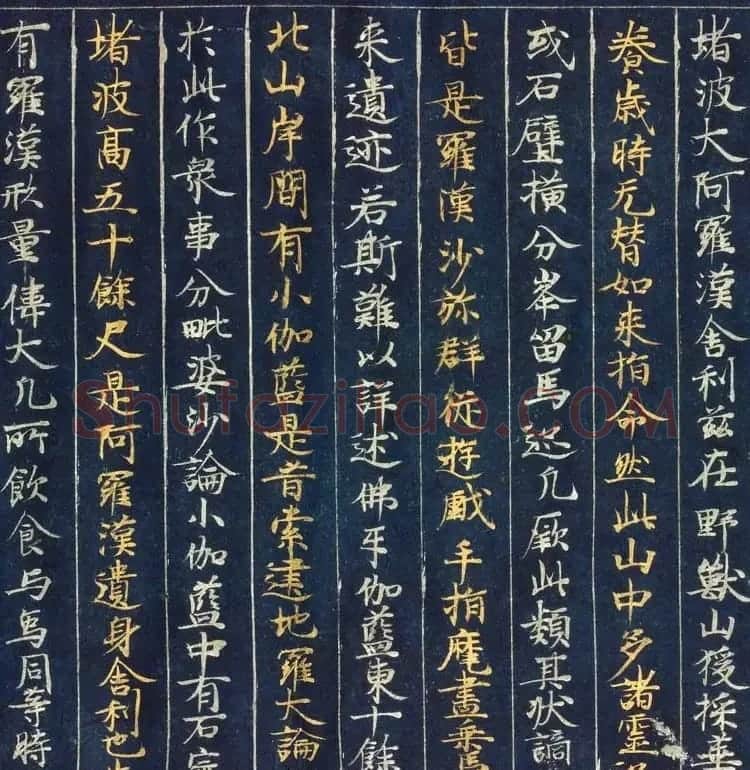 堵波大阿羅漢舍利茲在野獸山猨採華
養歲時无替如來指命然此山中多諸靈
或石壁橫分峯留馬迹凡厥此類其狀譎
皆是羅漢沙弥群從遊戲手指麾畫乘馬
来遺迹若斯難以詳述佛牙伽藍東十餘
北山岸間有小伽藍是昔索建地羅大論
於此作衆事分毗婆沙論小伽藍中有石
堵波高五十餘尺是阿羅漢遺身舍利也
有羅漢形量偉大凡所飲食与烏同等時
Shufaziliao.COM